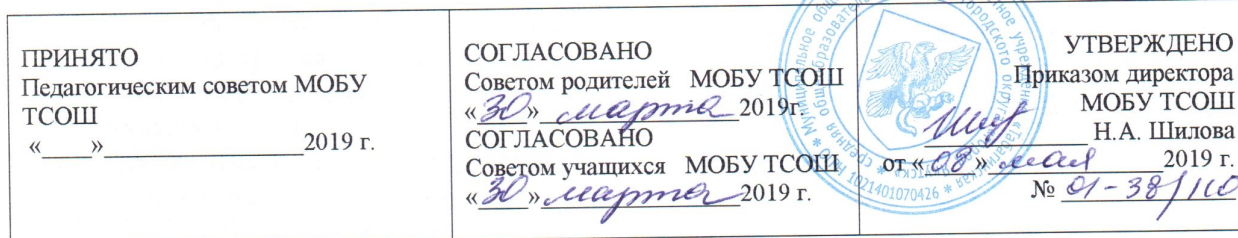 ПРИНЯТО
Педагогическим советом МОБУ
ТСОШ
«____»__________________2019 г.
СОГЛАСОВАНО
Советом родителей МОБУ ТСОШ
«30» марта 2019г.
СОГЛАСОВАНО
Советом учащихся МОБУ ТСОШ
«30» марта 2019 г.
УТВЕРЖДЕНО
Приказом директора
МОБУ ТСОШ
Н.А. Шилова
от «08» мая 2019 г.
№ 01-38/110
1021401070426